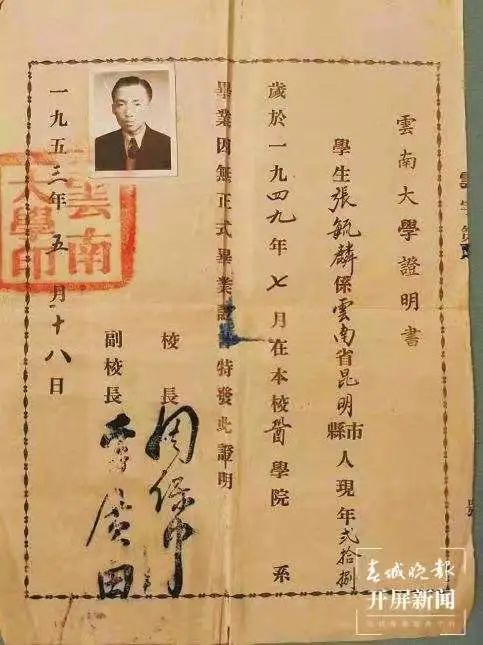 雲南大學證明書
學生張毓麟係雲南省昆明市縣人現年弍拾捌
歲於一九四九年七月在本校醫學院 系
畢業因無正式畢業證書特發此證明
校長 周保中
副校長 李廣田
一九五三年五月十八日
雲南
大學印
春城晚报
开屏新闻